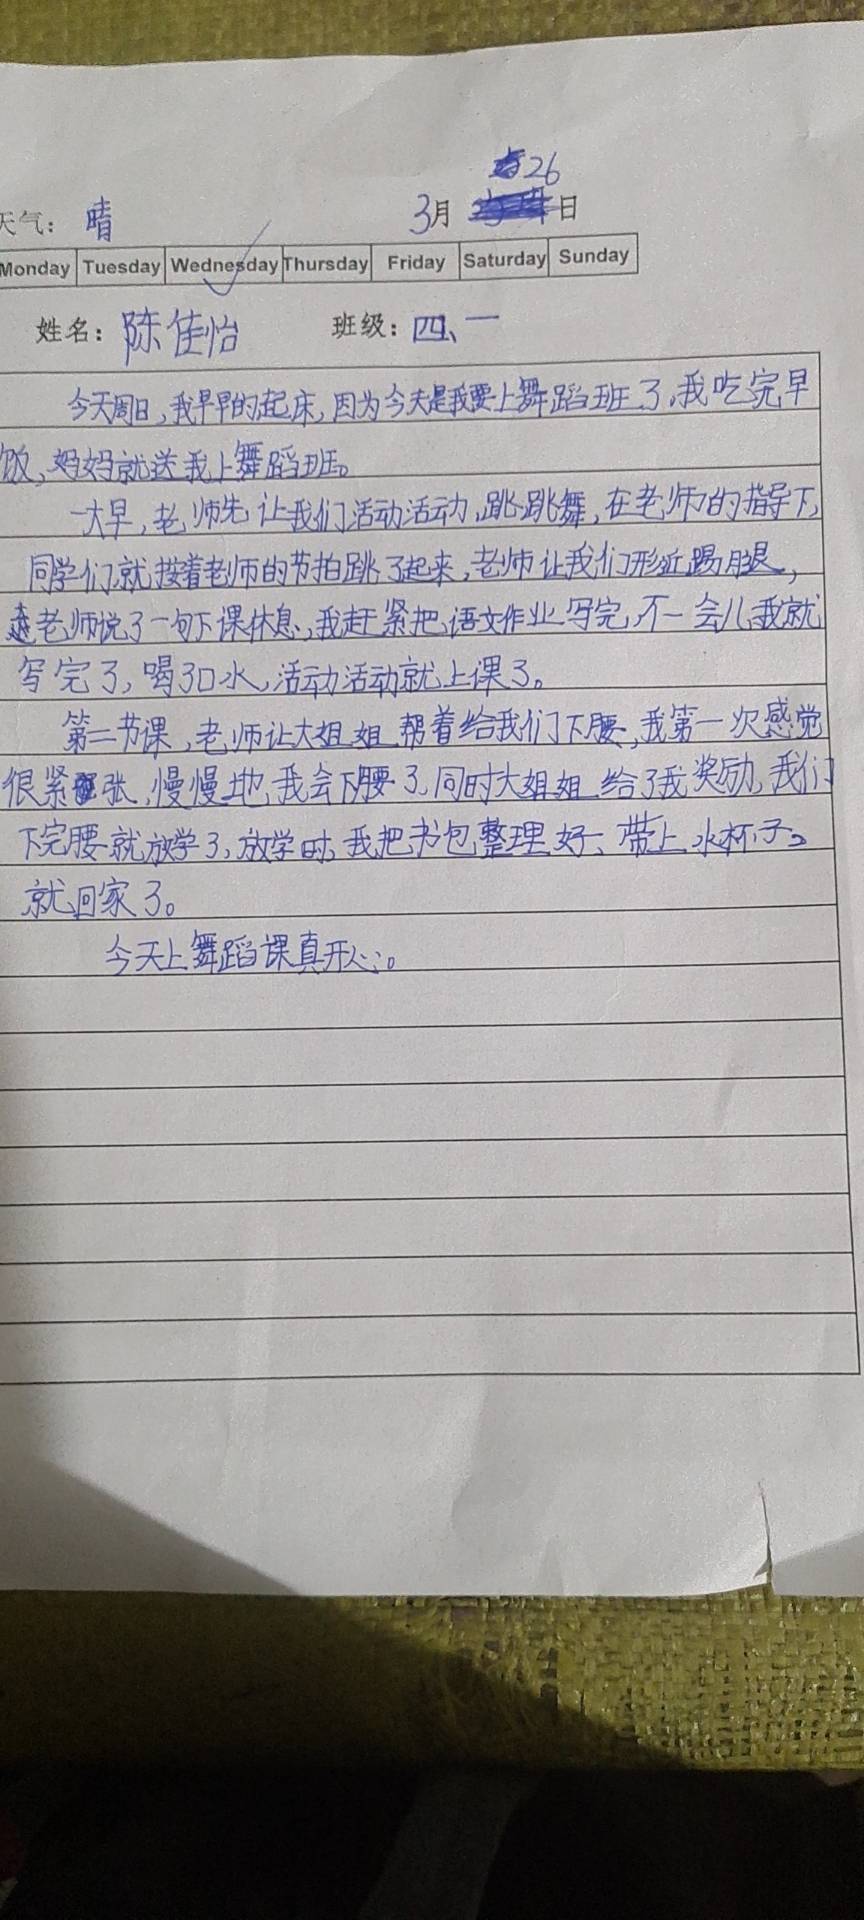 26
天气：晴 3月 日
Monday Tuesday Wednesday Thursday Friday Saturday Sunday
姓名：陈佳怡 班级：四、一
今天周日，我早早的起床，因为今天是我要上舞蹈班了，我吃完早
饭，妈妈就送我上舞蹈班。
一大早，老师先让我们活动活动，跳跳舞，在老师的指导下，
同学们就按着老师的节拍跳了起来，老师让我们形近踢腿，
老师说了一句下课休息，我赶紧把语文作业写完，不一会儿我就
写完了，喝了口水，活动活动就上课了。
第二节课，老师让大姐姐帮着给我们下腰，我第一次感觉
很紧张，慢慢地，我会下腰了，同时大姐姐给了我奖励，我们
下完腰就放学了，放学时，我把书包整理好、带上水杯子。
就回家了。
今天上舞蹈课真开心。